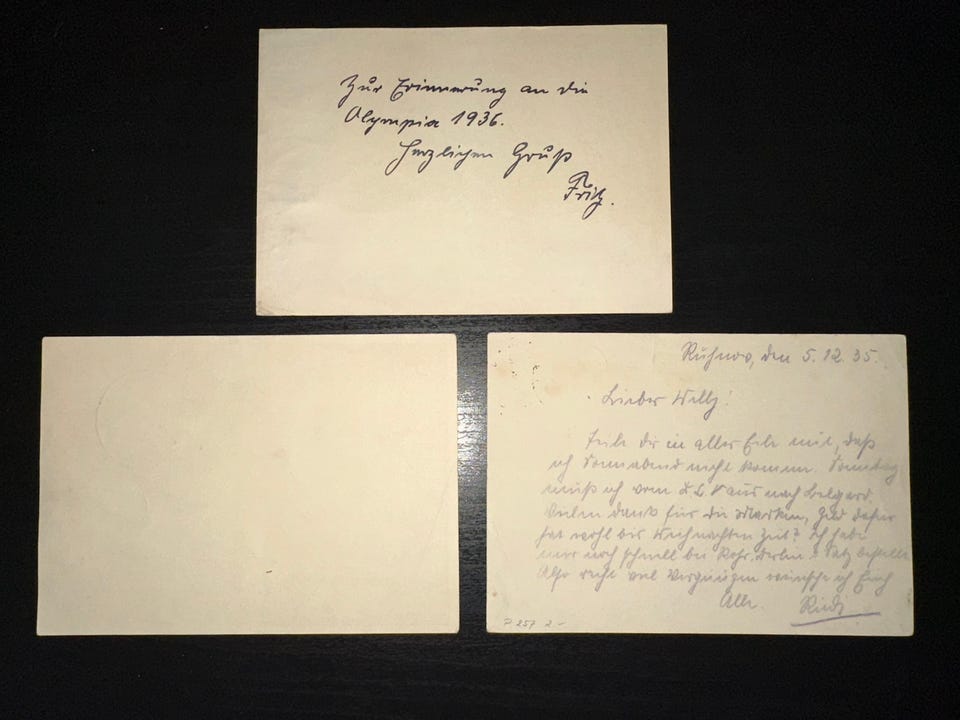 Zur Erinnerung an die
Olympia 1936.
Herzlichen Gruß
Fritz.
Ruhnow, den 5.12.35.
Lieber Willy!
Teile dir in aller Eile mit, daß
ich Sonnabend nicht komme. Sonntag
muß ich vom aus nach Belgard.
Vielen Dank für die Marken, Geld dafür
hat wohl bis Weihnachten Zeit? Ich habe
mir noch schnell bei Berlin Satz bestellt
Also recht viel Vergnügen wünsche ich Euch
Allen. Rudi
P 257 2-